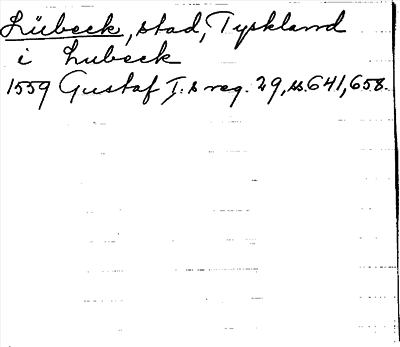 Lübeck, stad, Tyskland
i Lubeck
1559 Gustaf I:s reg. 29, ss. 641, 658.